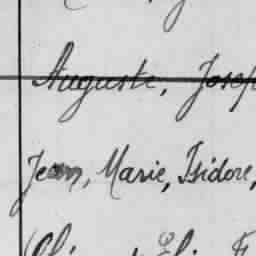 Auguste, Josep
Jean, Marie, Isidore,